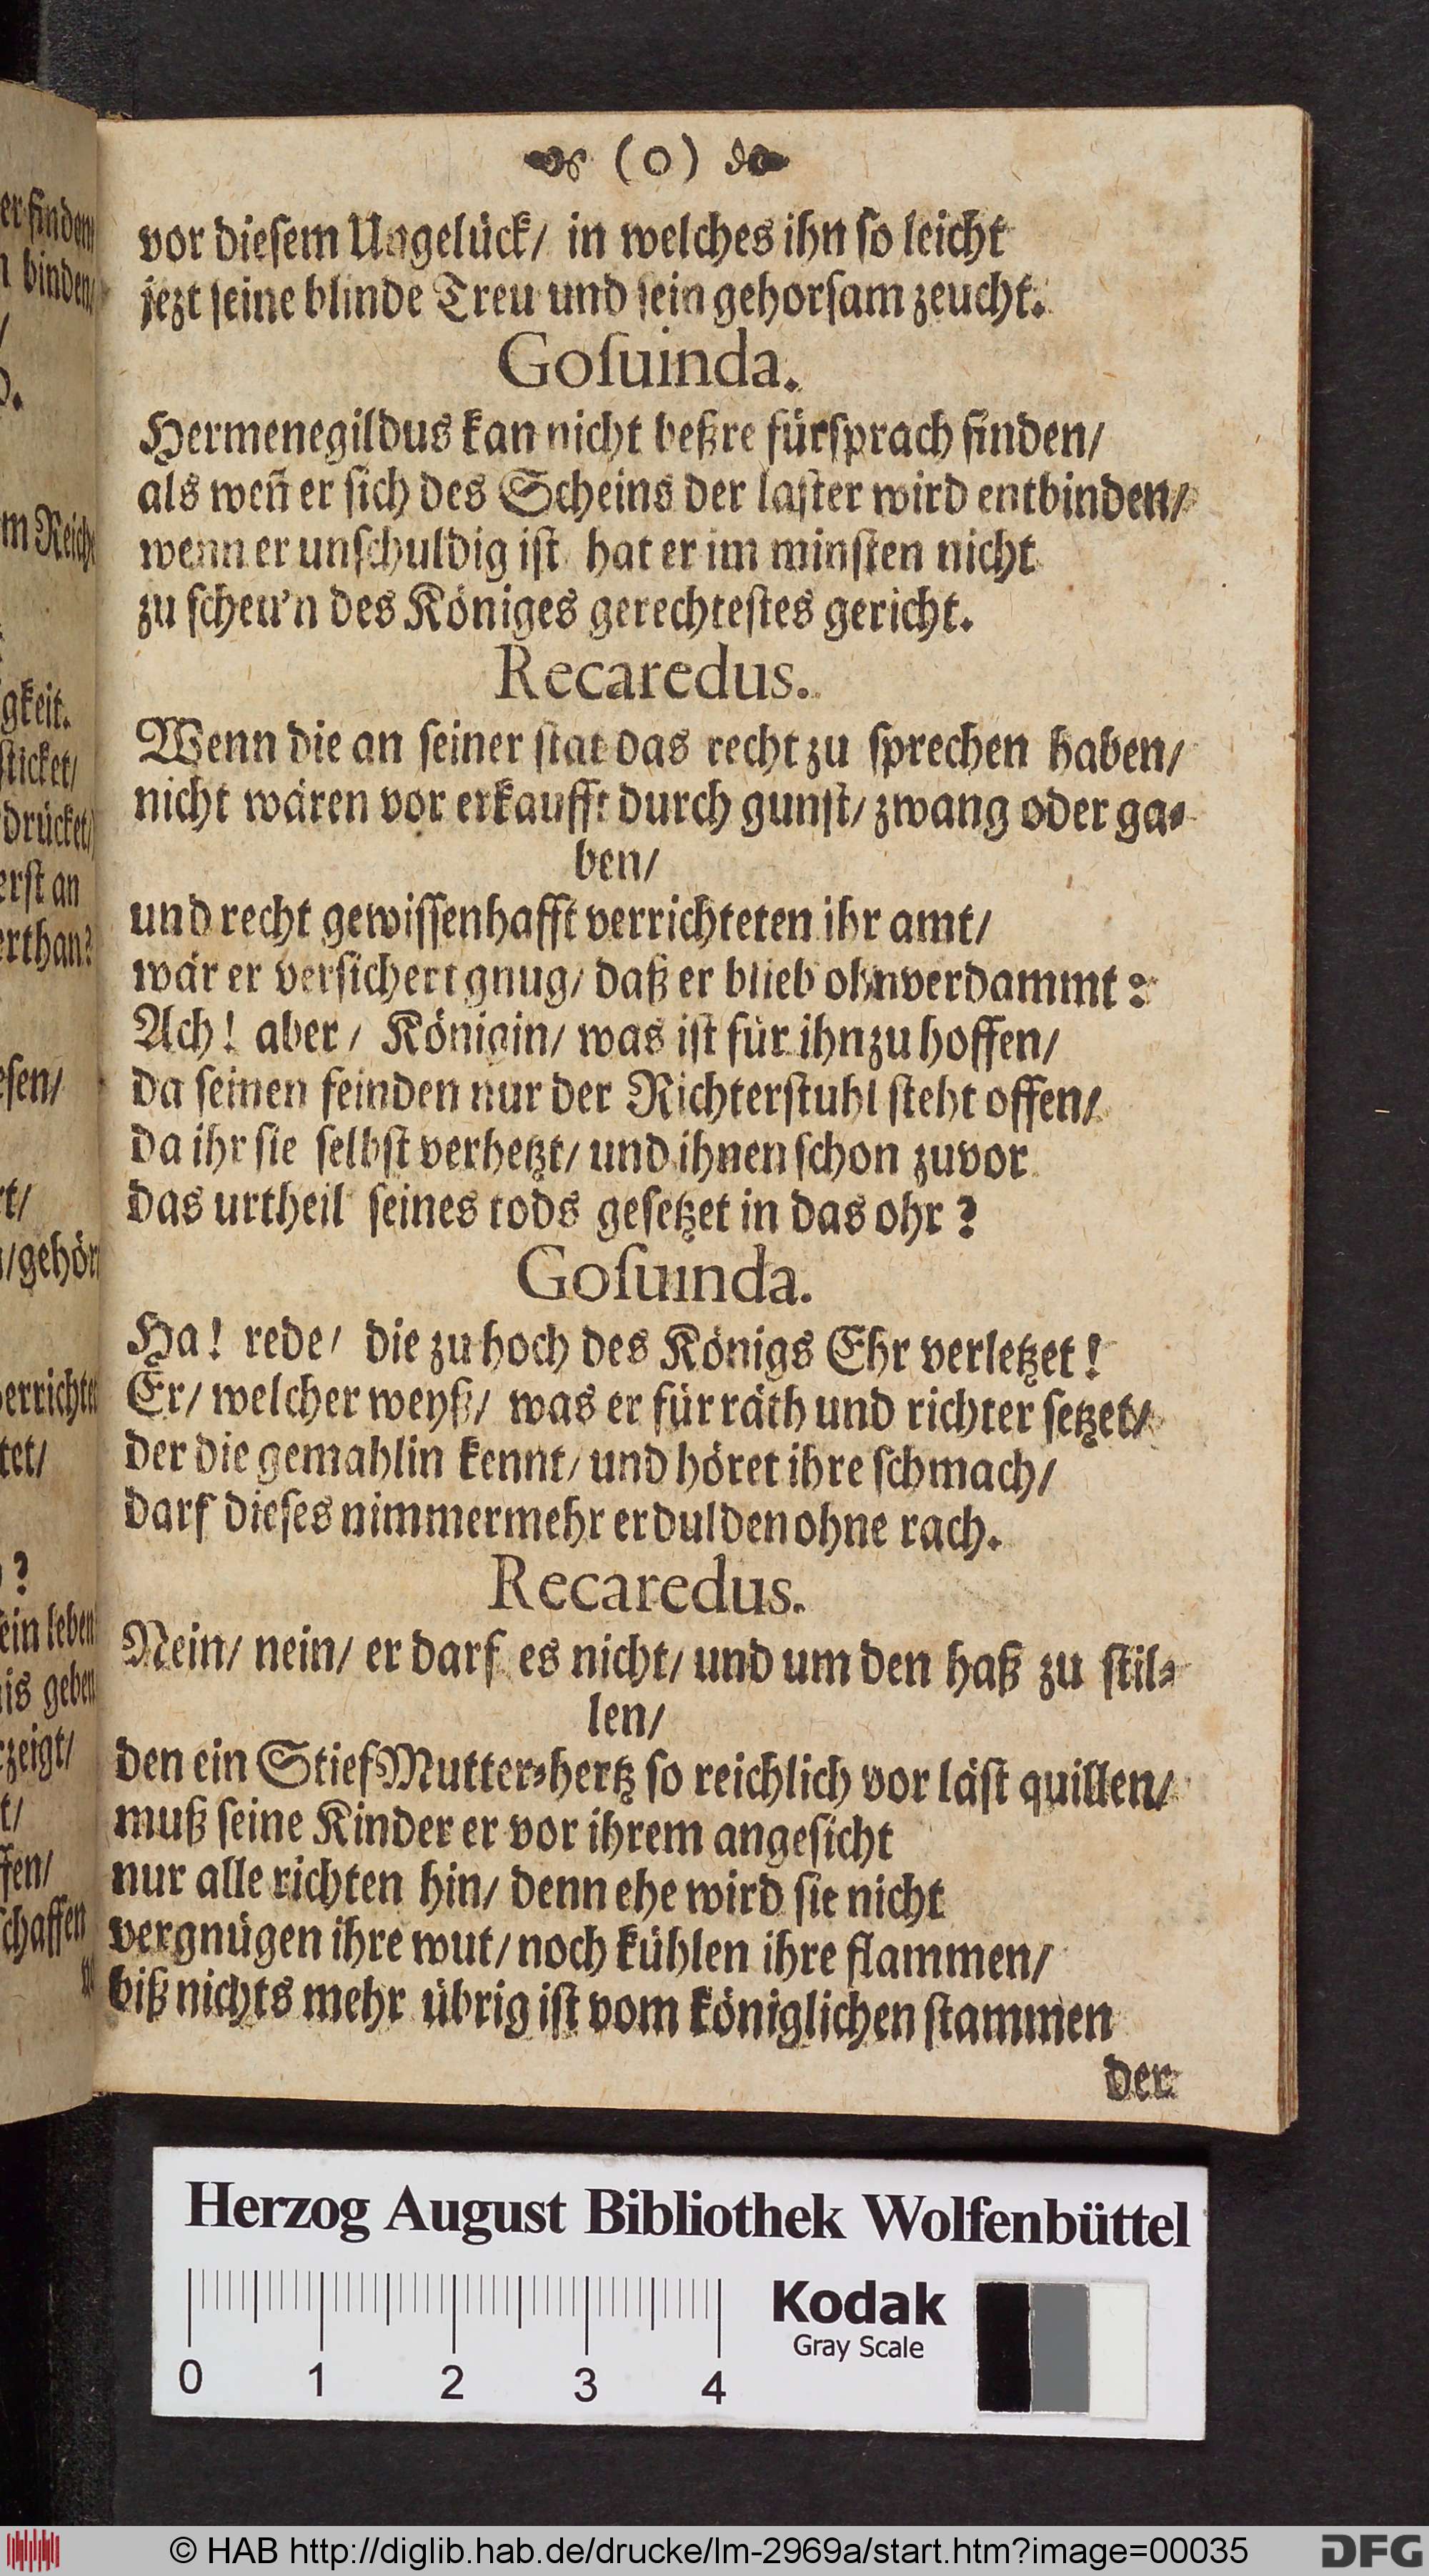 (o)
vor diesem Ungelück/ in welches ihn so leicht
jezt seine blinde Treu und sein gehorsam zeucht.
Gosuinda.
Hermenegildus kan nicht beßre fürsprach finden/
als weñ er sich des Scheins der laster wird entbinden/
wenn er unschuldig ist hat er im minsten nicht
zu scheu'n des Königes gerechtestes gericht.
Recaredus.
Wenn die an seiner stat das recht zu sprechen haben/
nicht wären vor erkaufft durch gunst/ zwang oder ga-
ben/
und recht gewissenhafft verrichteten ihr amt/
wär er versichert gnug/ daß er blieb ohnverdammt:
Ach! aber/ Königin/ was ist für ihn zu hoffen/
da seinen feinden nur der Richterstuhl steht offen/
da ihr sie selbst verhetzt/ und ihnen schon zuvor
das urtheil seines tods gesetzet in das ohr?
Gosuinda.
Ha! rede/ die zu hoch des Königs Ehr verletzet!
Er/ welcher weyß/ was er für räth und richter setzet/
der die gemahlin kennt/ und höret ihre schmach/
darf dieses nimmermehr erdulden ohne rach.
Recaredus.
Nein/ nein/ er darf es nicht/ und um den haß zu stil-
len/
den ein StiefMutter-hertz so reichlich vor läst quillen/
muß seine Kinder er vor ihrem angesicht
nur alle richten hin/ denn ehe wird sie nicht
vergnügen ihre wut/ noch kühlen ihre flammen/
biß nichts mehr übrig ist vom königlichen stammen
der
Herzog August Bibliothek Wolfenbüttel
0 1 2 3 4
Kodak
Gray Scale
© HAB http://diglib.hab.de/drucke/lm-2969a/start.htm?image=00035
DFG